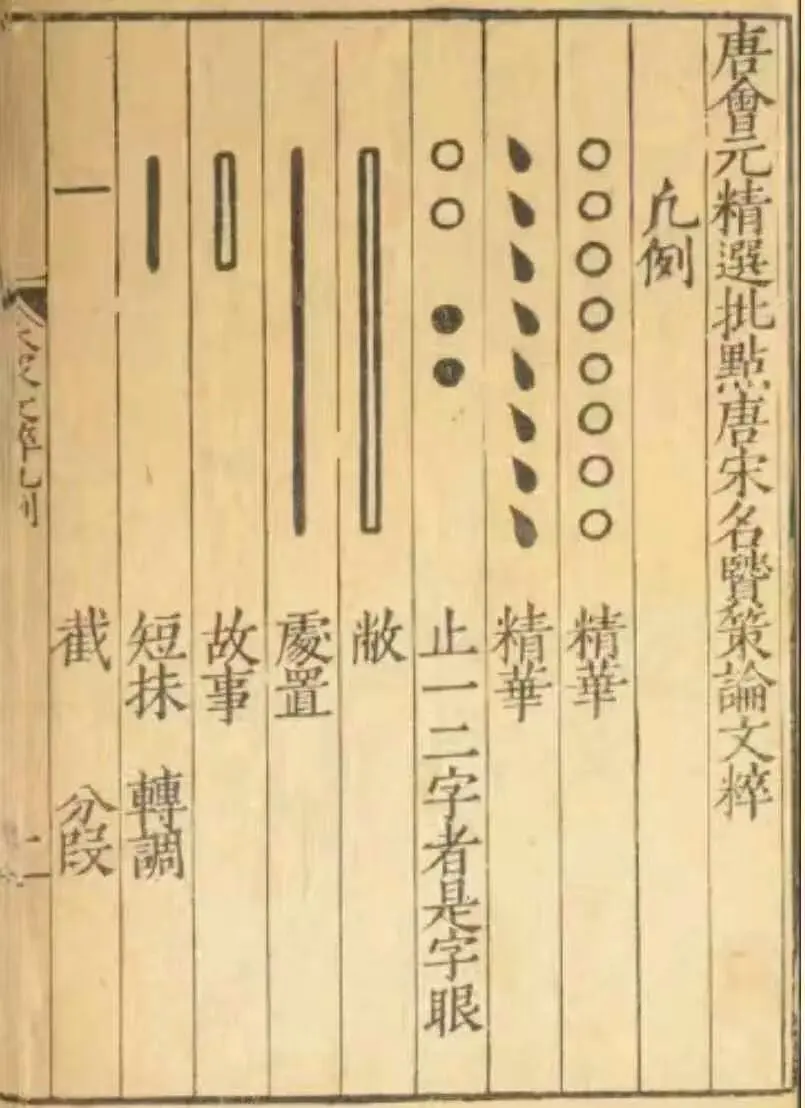 唐會元精選批點唐宋名賢策論文粹
凡例
精華
精華
止一二字者是字眼
敝
處置
故事
短抹 轉調
截 分段
二